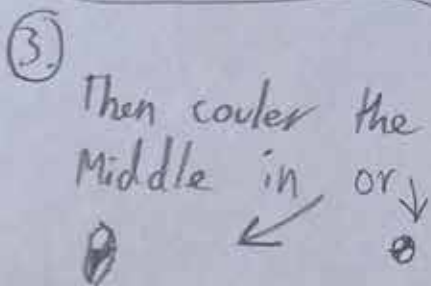 3.
Then couler the
Middle in or